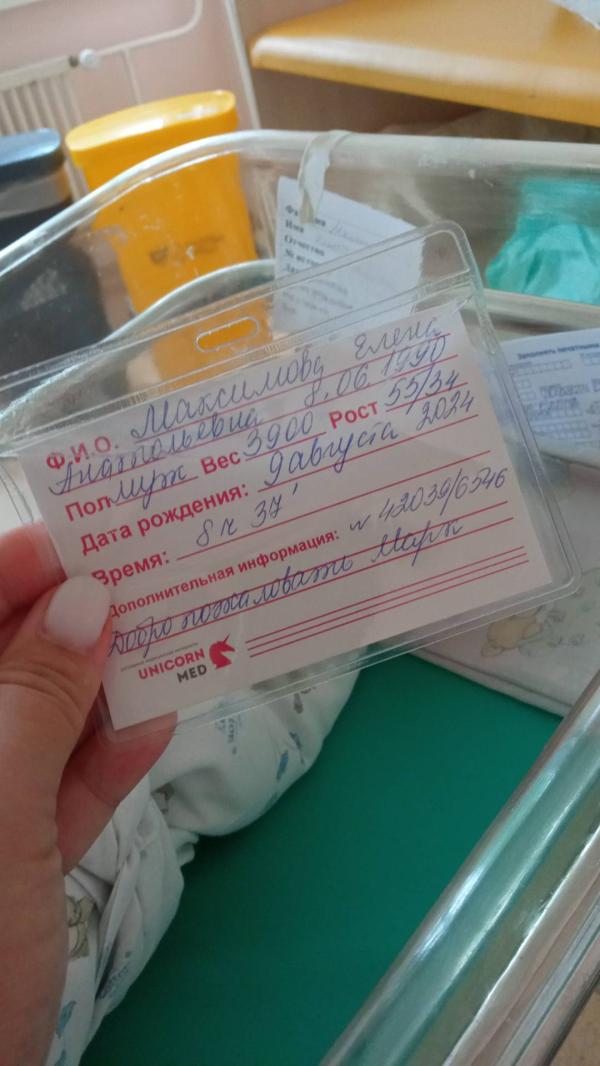 Фамилия
Имя
Отчество
№ исто
Ф.И.О. Максимова Елена
Анатольевна 8.06.1990
Пол муж Вес 3900 Рост 55/34
Дата рождения: 9 августа 2024
Время: 8ч 37'
Дополнительная информация: № 42039/6546
Добро пожаловать Марк
UNICORN
MED